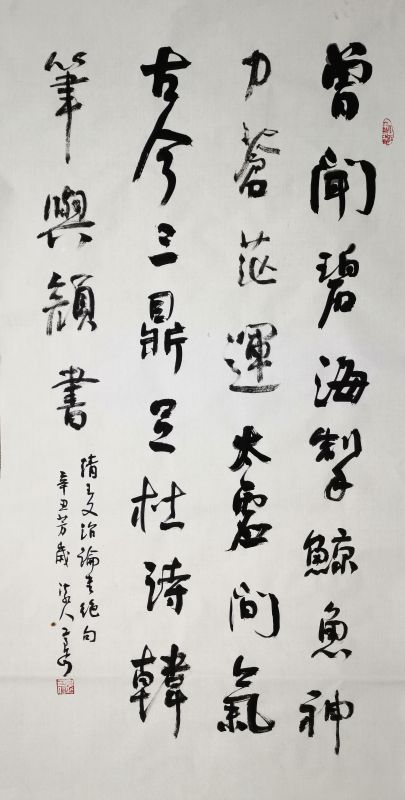 曾聞碧海掣鯨魚神
力蒼茫運太虛間氣
古今三鼎足杜詩韓
筆與顏書
清王文治論書絕句
辛丑芳歲